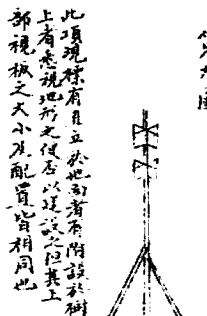 此項覘標有直立於地面者有附設於樹
上者悉視地形之便否以選設之但其上
部視板之大小及配置皆相同也